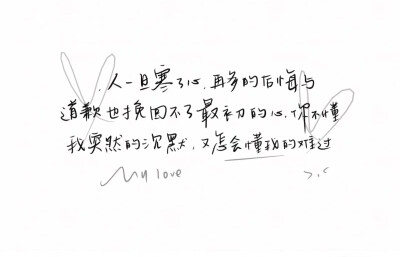 人一旦寒了心,再多的后悔与
道歉也挽回不了最初的心.你不懂
我突然的沉默,又怎会懂我的难过
My love